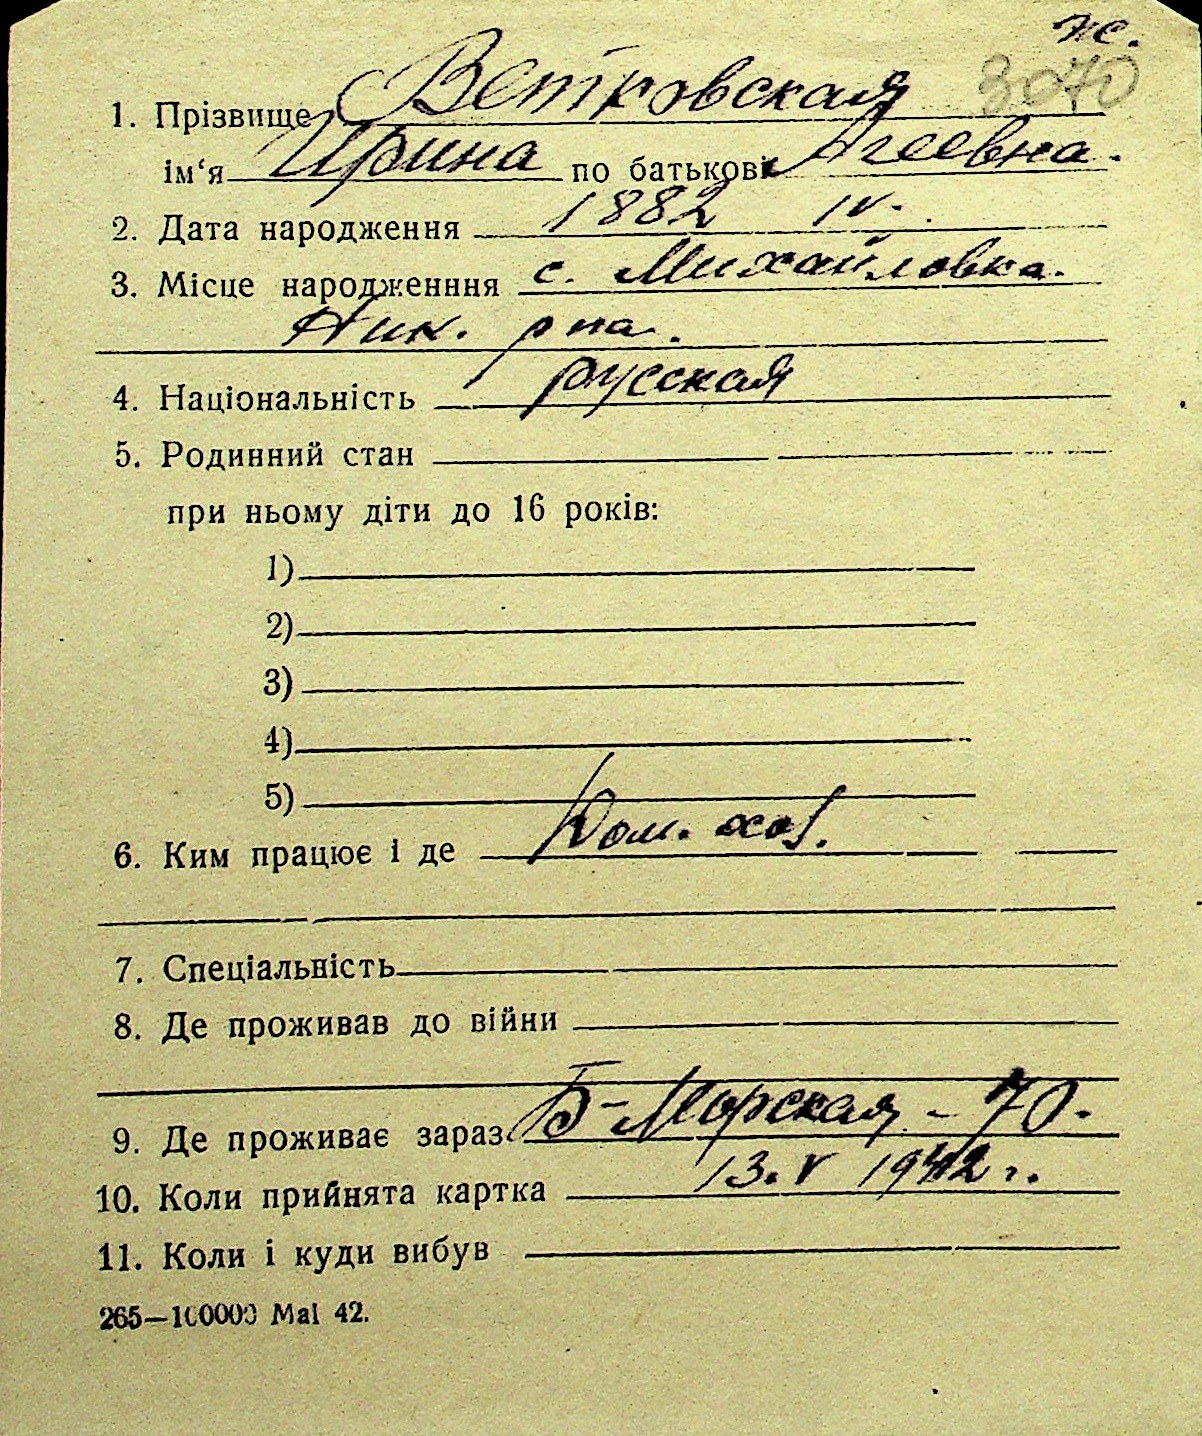 ж.
3070
1. Прізвище Ветковская
ім‘я Ирина по батькові Агеевна.
2. Дата народження 1882 IV.
3. Місце народженння с. Михайловка.
Ник. р на.
4. Національність русская
5. Родинний стан
при ньому діти до 16 років:
1)
2)
3)
4)
5)
6. Ким працює і де Дом. хоз.
7. Спеціальність
8. Де проживав до війни
9. Де проживає зараз Б-Морская - 70.
10. Коли прийнята картка 13.V 1942 г.
11. Коли і куди вибув
265—100000 Mai 42.